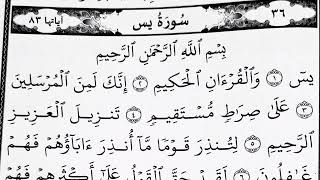 ٣٦ سُورَةُ يسٓ آياتها ٨٣
بِسْمِ ٱللَّهِ ٱلرَّحْمَٰنِ ٱلرَّحِيمِ
يسٓ ١ وَٱلْقُرْءَانِ ٱلْحَكِيمِ ٢ إِنَّكَ لَمِنَ ٱلْمُرْسَلِينَ
٣ عَلَىٰ صِرَٰطٍ مُّسْتَقِيمٍ ٤ تَنزِيلَ ٱلْعَزِيزِ
ٱلرَّحِيمِ ٥ لِتُنذِرَ قَوْمًا مَّآ أُنذِرَ ءَابَآؤُهُمْ فَهُمْ
غَٰفِلُونَ ٦ لَقَدْ حَقَّ ٱلْقَوْلُ عَلَىٰٓ أَكْثَرِهِمْ فَهُمْ